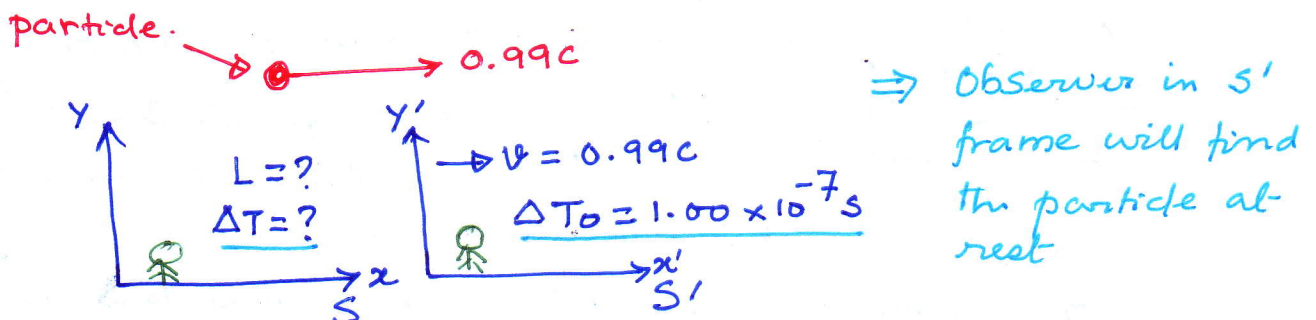 particle.
0.99c
Y
L = ?
ΔT = ?
x
S
Y'
v = 0.99c
ΔT₀ = 1.00 × 10⁻⁷ s
x'
S'
⇒ Observer in s'
frame will find
the particle at
rest